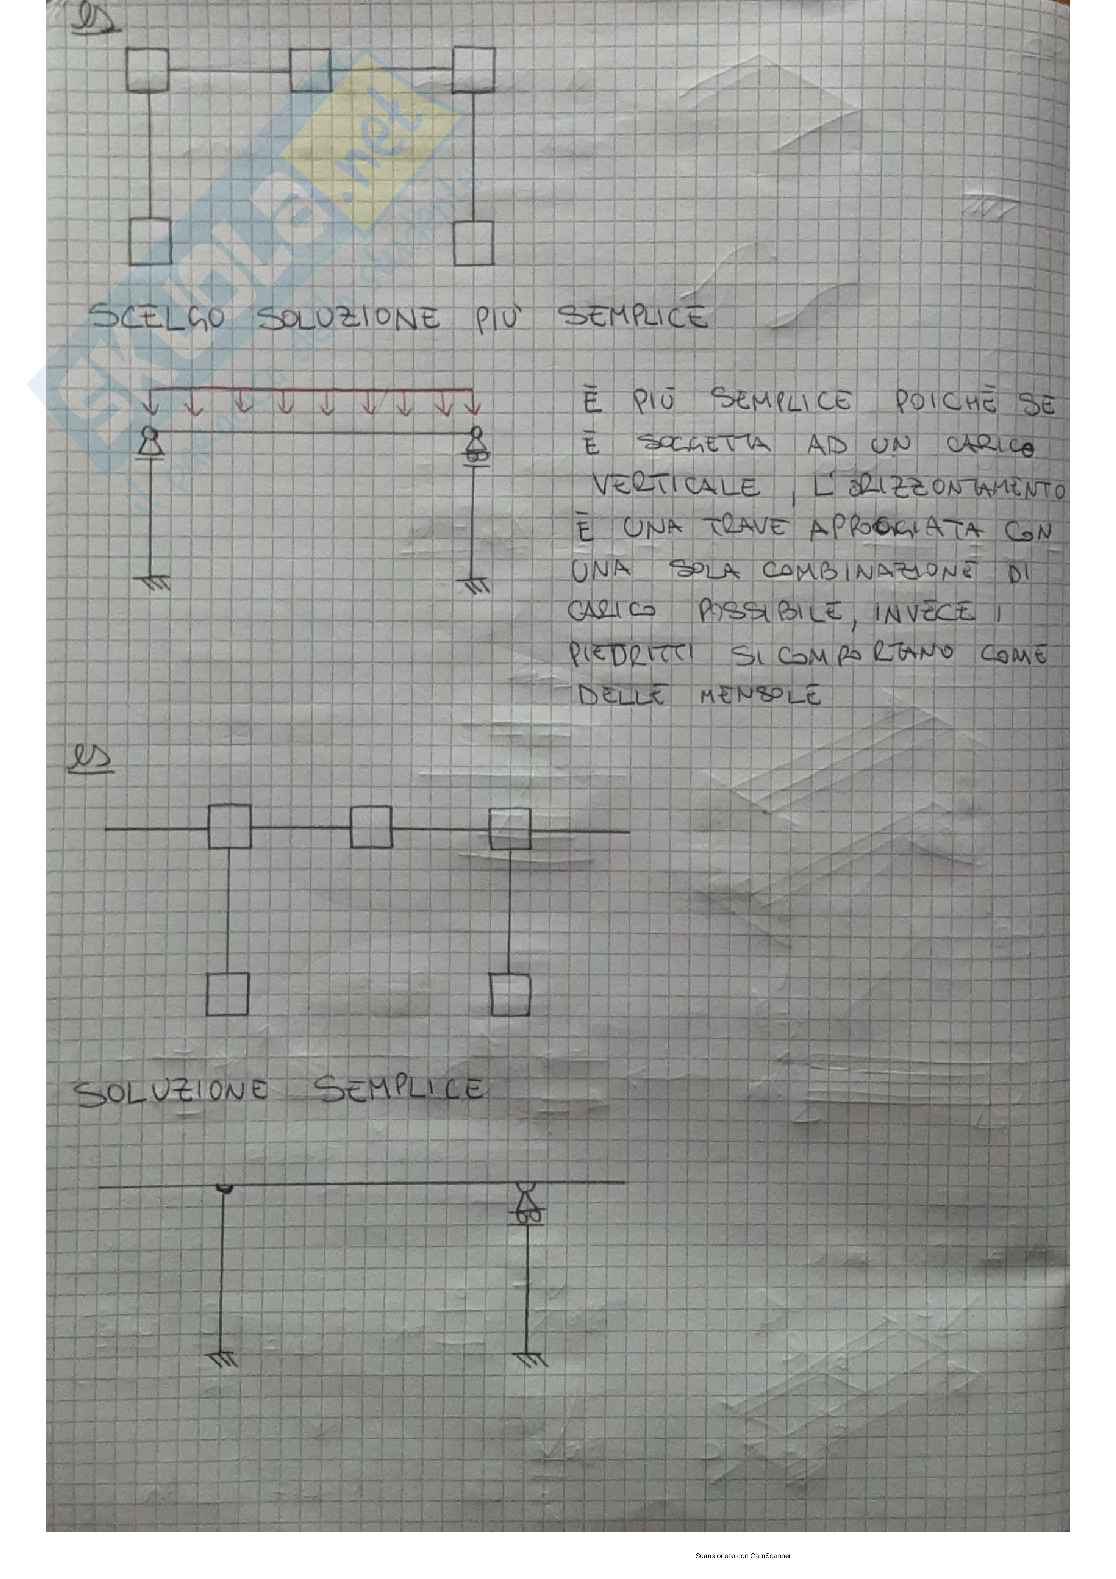 es
SKUOLA.net
SCELGO SOLUZIONE PIÙ SEMPLICE
È PIÙ SEMPLICE POICHÈ SE
È SOGGETTA AD UN CARICO
VERTICALE, L'ORIZZONTAMENTO
È UNA TRAVE APPOGGIATA CON
UNA SOLA COMBINAZIONE DI
CARICO POSSIBILE, INVECE I
PIEDRITTI SI COMPORTANO COME
DELLE MENSOLE
es
SOLUZIONE SEMPLICE
CamScanner